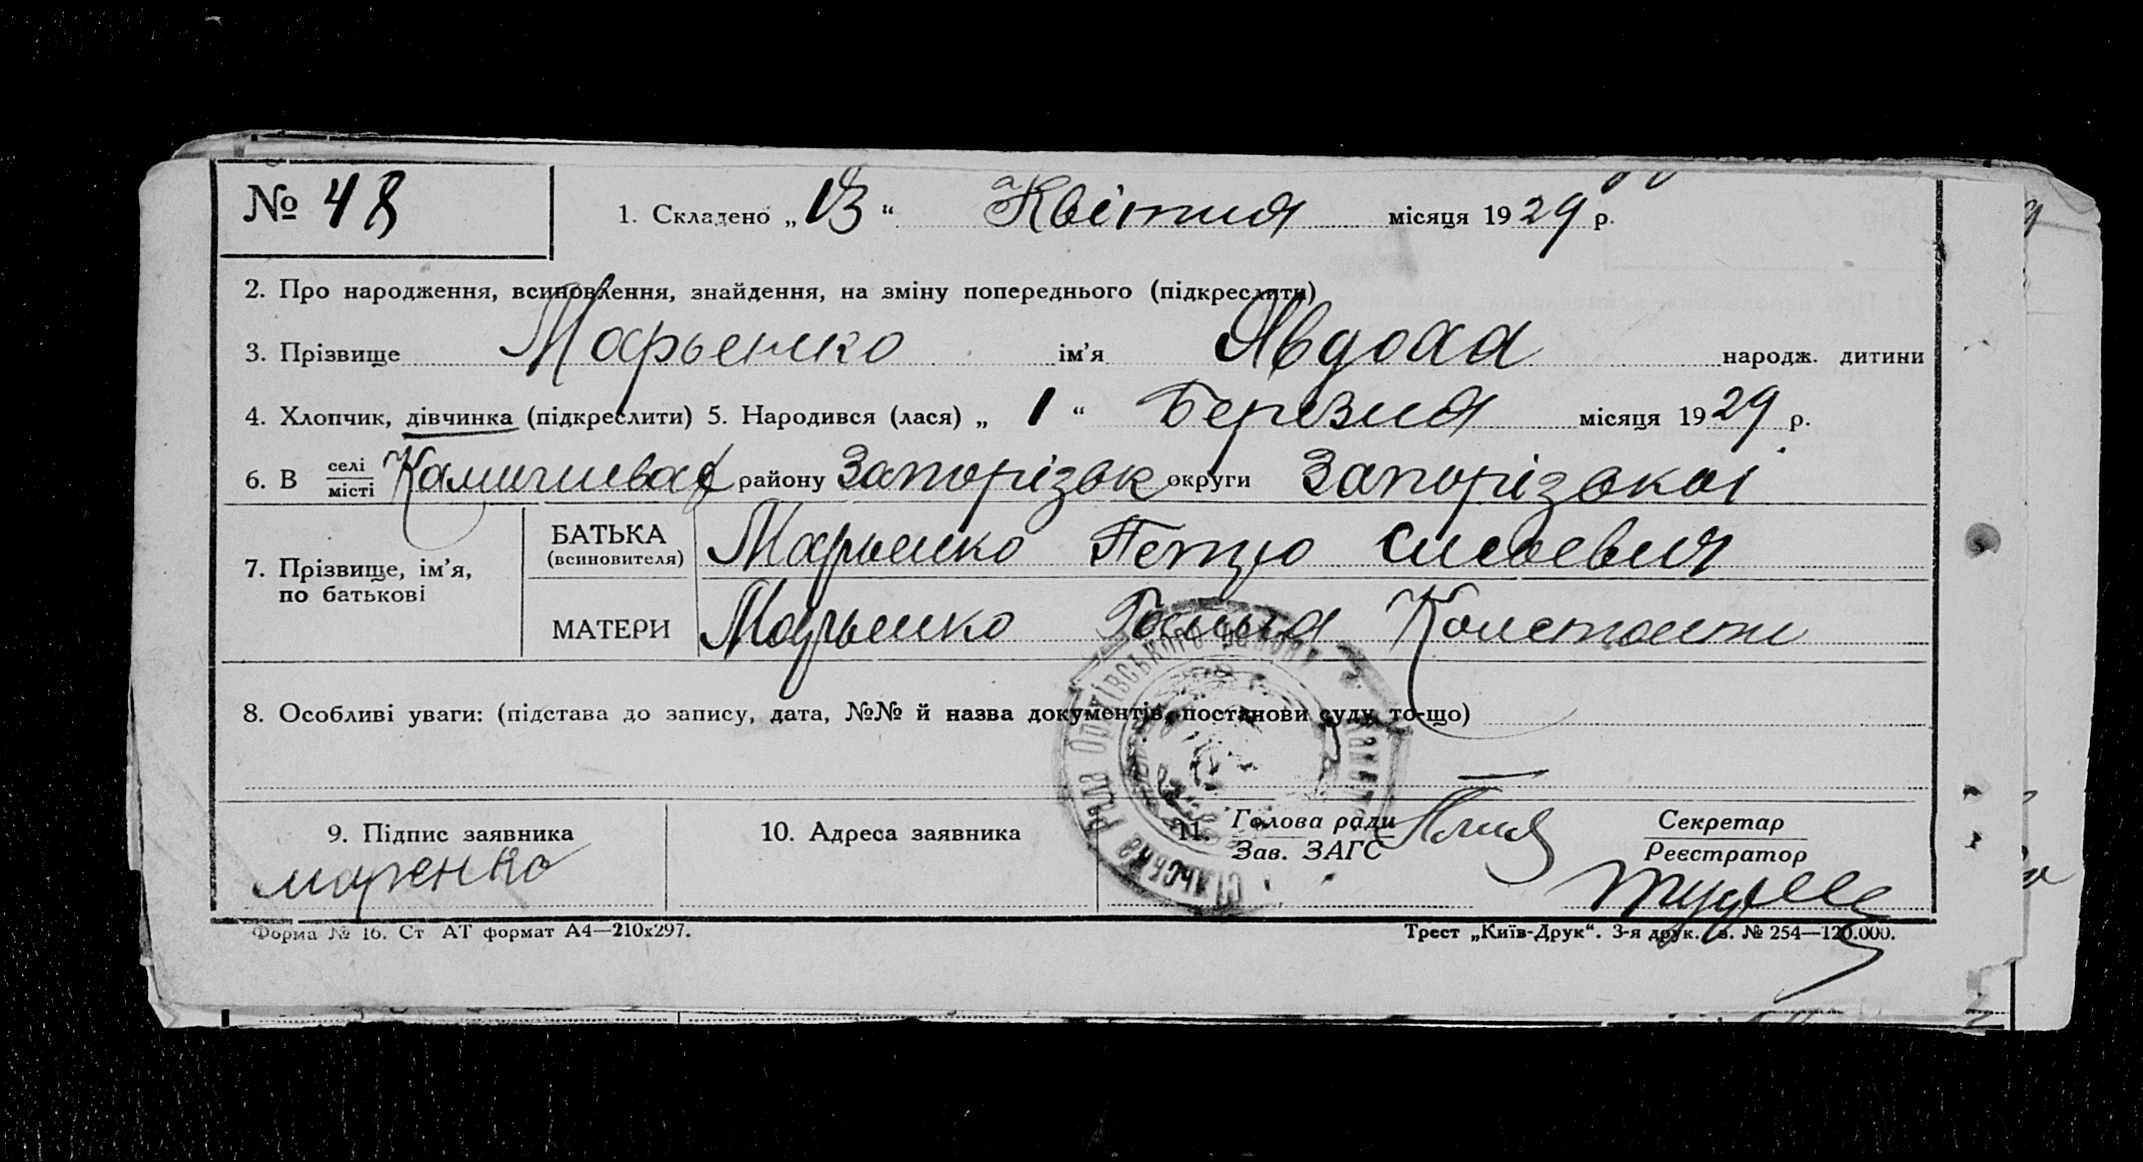 № 48
1. Складено „ 13 “ Квітня місяця 1929 р.
2. Про народження, всиновлення, знайдення, на зміну попереднього (підкреслити)
3. Прізвище Марьенко ім’я Явдоха народж. дитини
4. Хлопчик, дівчинка (підкреслити) 5. Народився (лася) „ 1 “ Березня місяця 1929 р.
6. В селі/місті Камишеваха району Запорізьк округи Запорізької
7. Прізвище, ім’я, по батькові
БАТЬКА (всиновителя) Марьенко Петро
МАТЕРИ Марьенко Констант
8. Особливі уваги: (підстава до запису, дата, №№ й назва документів, постанови суду, то-що)
9. Підпис заявника
маренко
10. Адреса заявника
11. Голова ради
Зав. ЗАГС
Секретар
Реєстратор
Сільська Рада Оріхівського району
Форма № 16. Ст АТ формат А4—210х297.
Трест „Київ-Друк“. 3-я друк. з. № 254—120.000.